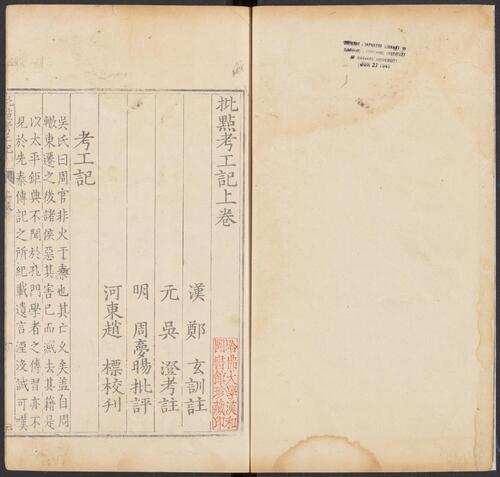 JAPANESE LIBRARY OF
HARVARD UNIVERSITY
JUN 27 1941
批點考工記上卷
漢 鄭 玄訓註
元 吳 澄考註
明 周夢暘批評
河東趙 標校刋
哈佛大學漢和
圖書館珍藏印
考工記
吳氏曰周官非火于秦也其亡久矣蓋自周
轍東遷之後諸侯惡其害已而滅去其籍是
以太平鉅典不聞於孔門學者之傳習亦不
見於先秦傳記之所紀載遺言湮沒誠可嘆